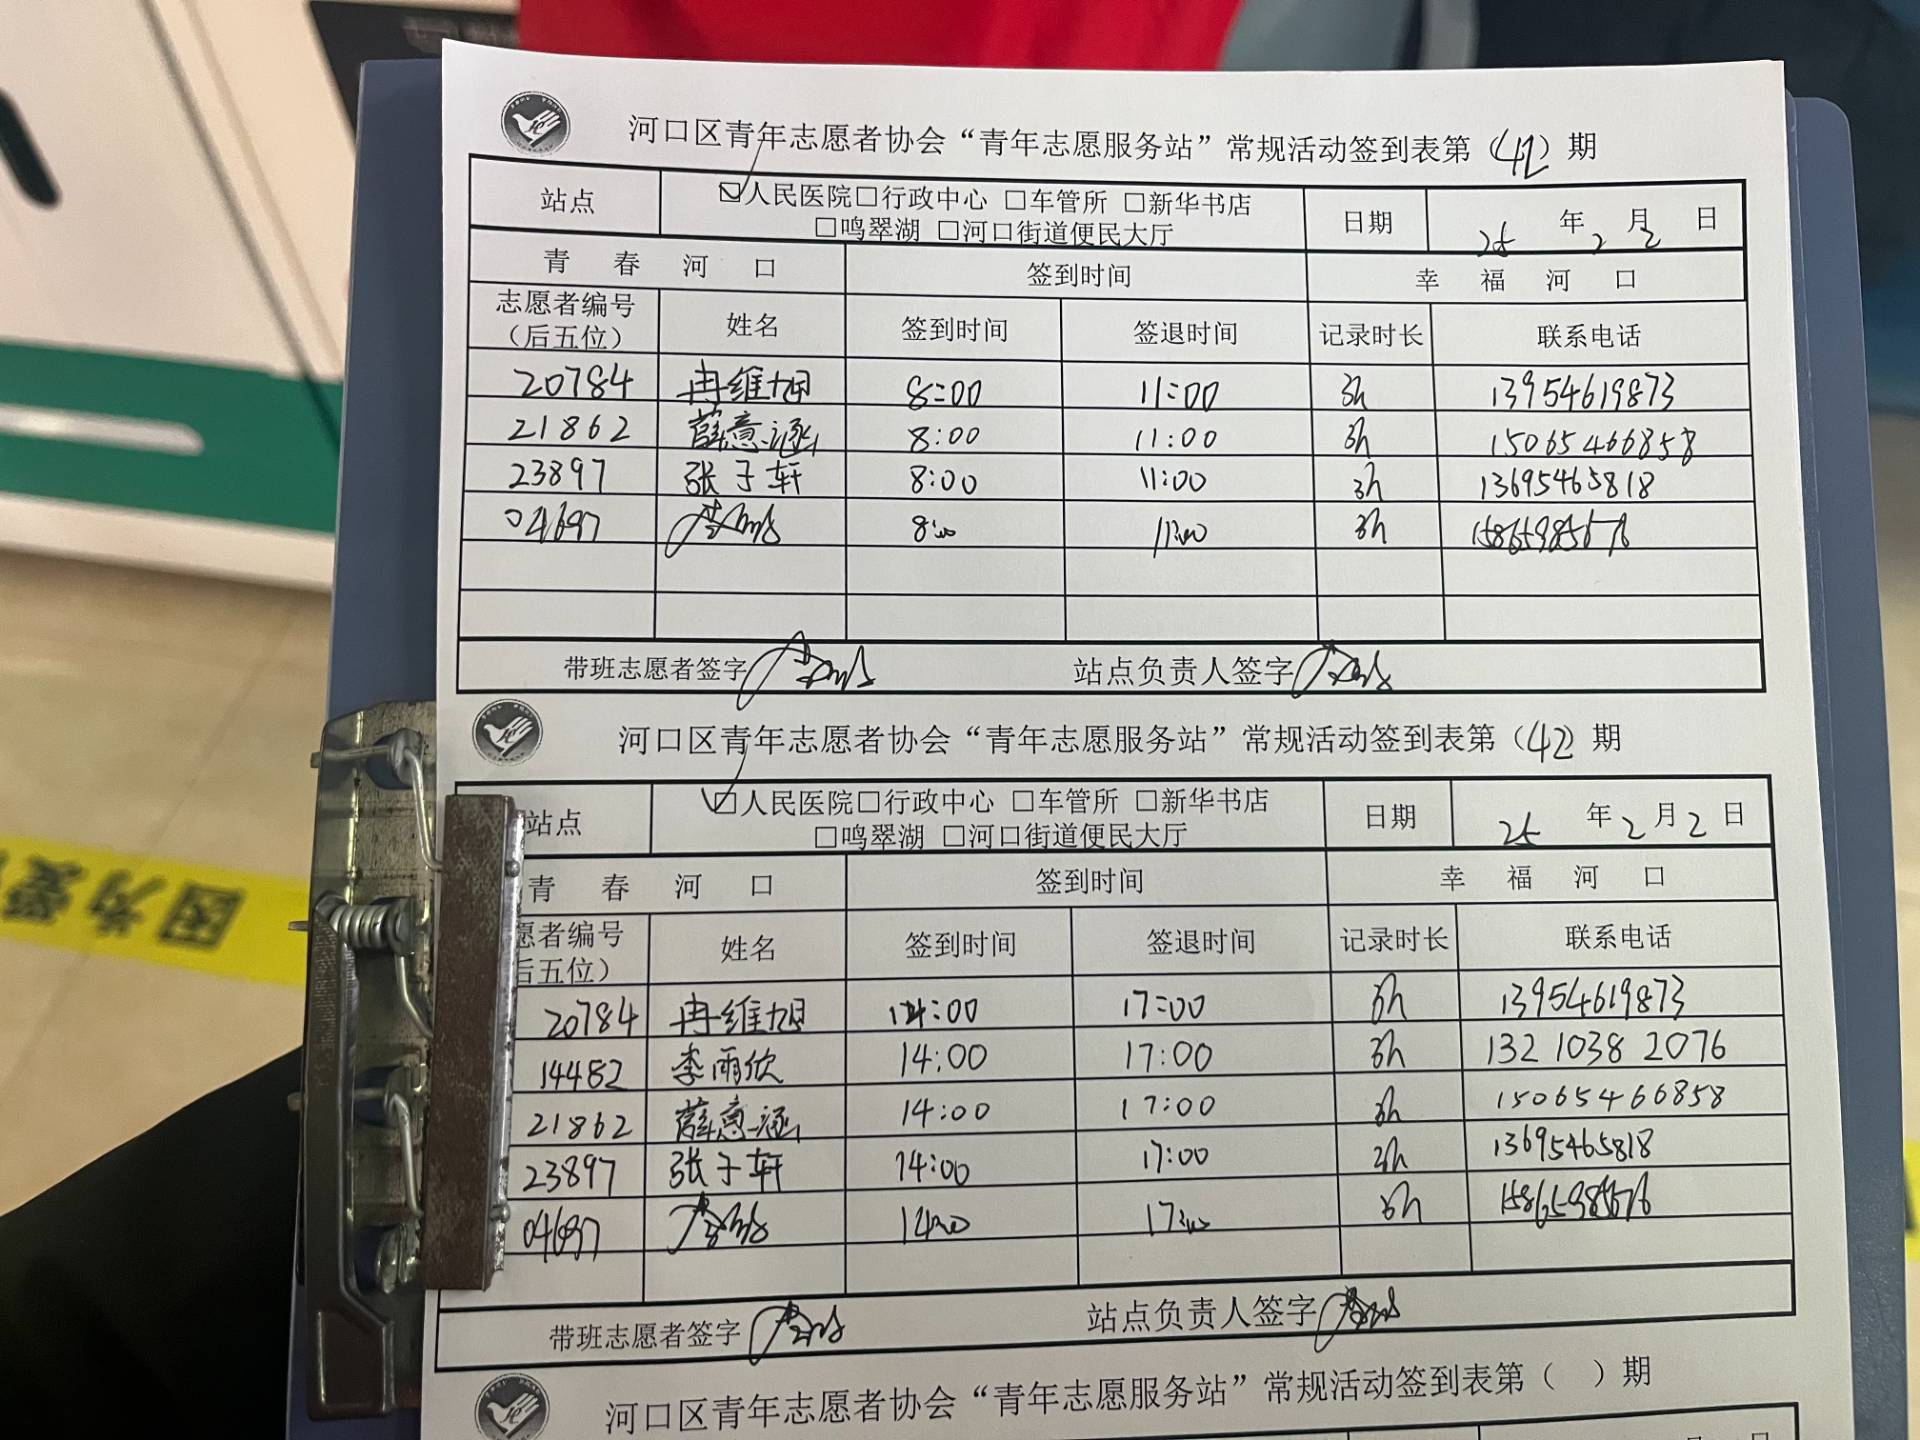 河口区青年志愿者协会“青年志愿服务站”常规活动签到表第（42）期
站点 ☑人民医院□行政中心 □车管所 □新华书店 日期 25年2月2日
□鸣翠湖 □河口街道便民大厅
青春河口 签到时间 幸福河口
志愿者编号 姓名 签到时间 签退时间 记录时长 联系电话
（后五位）
20784 冉维旭 8:00 11:00 3h 13954619873
21862 薛意涵 8:00 11:00 3h 15065466858
23897 张子轩 8:00 11:00 3h 13695465818
04697 8:00 11:00 3h
带班志愿者签字 站点负责人签字
河口区青年志愿者协会“青年志愿服务站”常规活动签到表第（42）期
站点 ☑人民医院□行政中心 □车管所 □新华书店 日期 25年2月2日
□鸣翠湖 □河口街道便民大厅
青春河口 签到时间 幸福河口
愿者编号 姓名 签到时间 签退时间 记录时长 联系电话
后五位）
20784 冉维旭 14:00 17:00 3h 13954619873
14482 李雨欣 14:00 17:00 3h 132 1038 2076
21862 薛意涵 14:00 17:00 3h 15065466858
23897 张子轩 14:00 17:00 3h 13695465818
04697 14:00 17:00 3h
带班志愿者签字 站点负责人签字
河口区青年志愿者协会“青年志愿服务站”常规活动签到表第（ ）期
因为爱